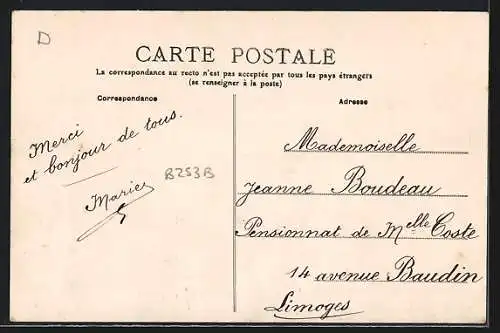 D
CARTE POSTALE
La correspondance au recto n'est pas acceptée par tous les pays étrangers
(se renseigner à la poste)
Correspondance
Merci
et bonjour de tous.
Marie
B253B
Adresse
Mademoiselle
Jeanne Boudeau
Pensionnat de Melle Coste
14 avenue Baudin
Limoges